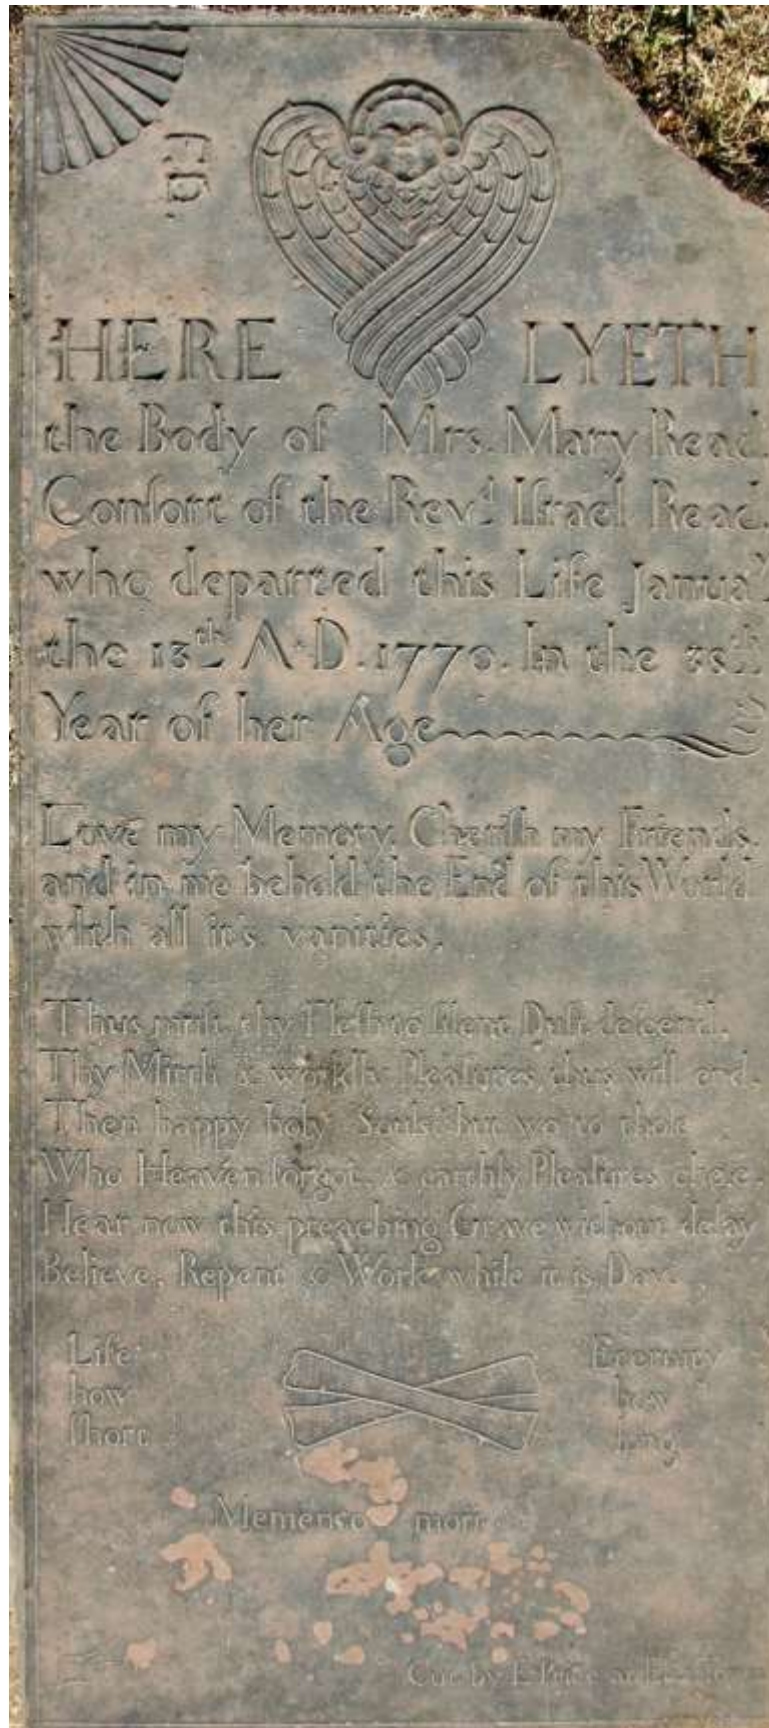 HERE LYETH
the Body of Mrs. Mary Read.
Conſort of the Rev.d Iſrael Read.
who departed this Life Janua.y
the 13th A·D. 1770. In the 38th
Year of her Age
Love my Memory. Cheriſh my Friends.
and in me behold the End of this World
with all it's vanities.
Thus muſt thy Fleſh to ſilent Duſt deſcend.
Thy Mirth & worldly Pleaſures, thus will end.
Then happy holy Souls: but wo to thoſe
Who Heaven forgot, & earthly Pleaſures choſe.
Hear now this preaching Grave without delay
Believe, Repent & Work while it is Day.
Life Eternity
how how
ſhort long
Memento mori
Cut by E. Price